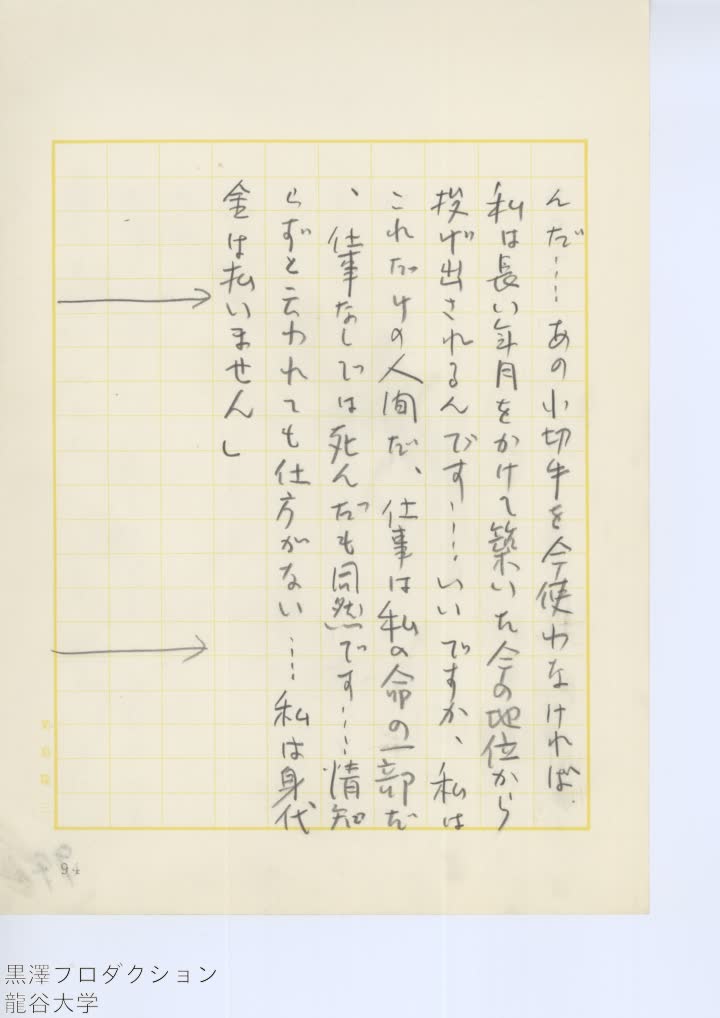 んだ……あの小切手を今使わなければ
私は長い年月をかけて築いた今の地位から
投げ出されるんです……いいですか、私は
これだけの人間だ、仕事は私の命の一部だ
、仕事なしでは死んだも同然です……情知
らずと云われても仕方がない……私は身代
金は払いません」
94
黒澤プロダクション
龍谷大学